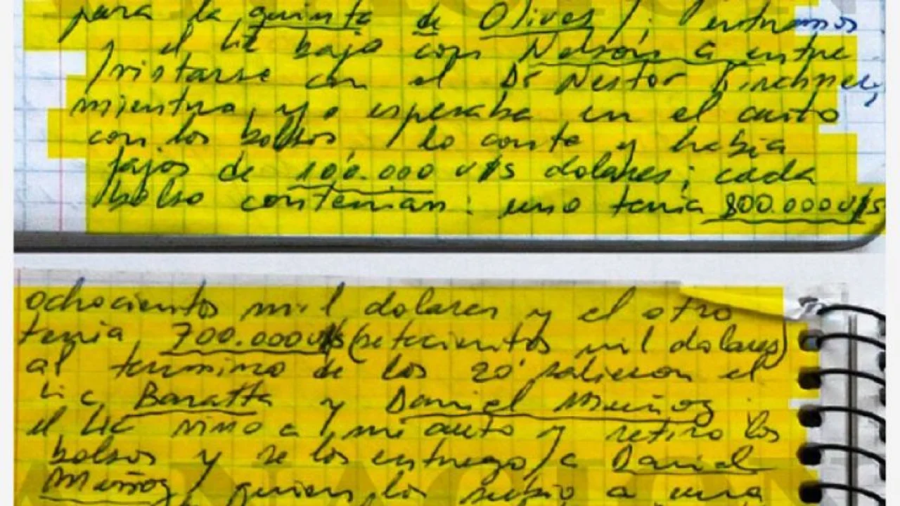 para la quinta de Olivos /: entramos
y el lic bajo con Nelson a entre
/vistarse con el Dr Nestor Kirchner,
mientras yo esperaba en el auto
con los bolsos, lo conte y habia
fajos de 100.000 u$s dolares; cada
bolso contenian: uno tenia 800.000 u$s
ochocientos mil dolares y el otro
tenia 700.000 u$s (setecientos mil dolares)
al termino de los 20' salieron el
Lic Baratta y Daniel Muñoz
el Lic vino a mi auto y retiro los
bolsos y se los entrego a Daniel
Muñoz, quien los subio a una